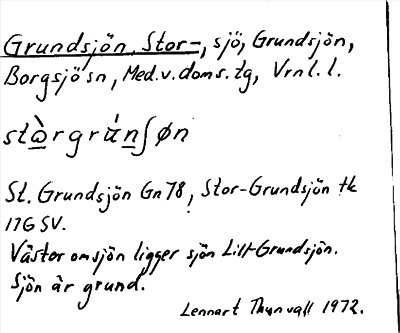 Grundsjön, Stor-, sjö, Grundsjön,
Borgsjö sn, Med.v.doms.tg, Vrnl.l.
stàrgrúnʃøn
St. Grundsjön Gn 78, Stor-Grundsjön tk
17G SV.
Väster om sjön ligger sjön Lill-Grundsjön.
Sjön är grund.
Lennart Thunvall 1972.